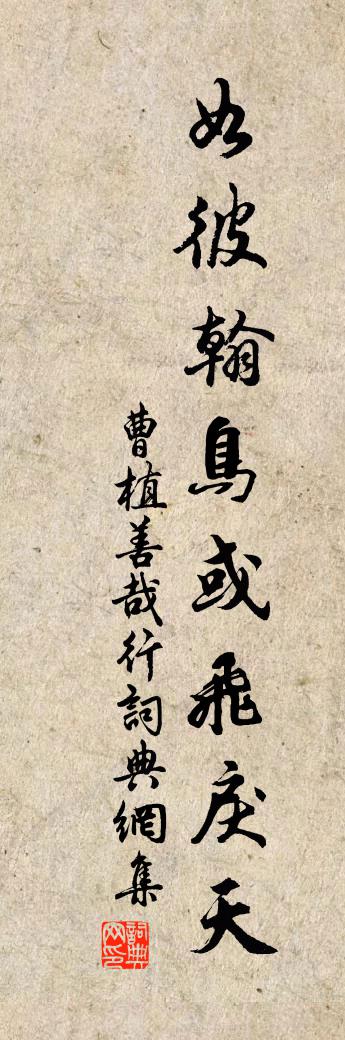 如彼翰鳥或飛戾天
曹植善哉行詞典網集
詞典网印